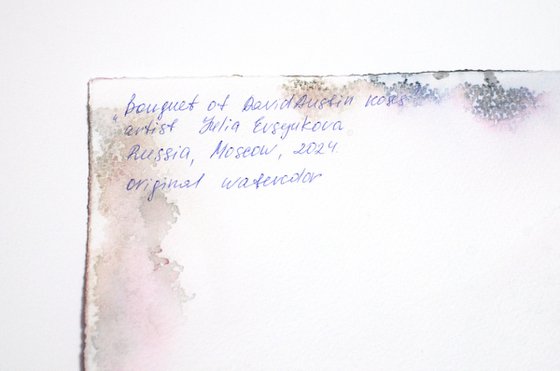 "Bouquet of David Austin roses"
artist Julia Evsyukova
Russia, Moscow, 2024
original watercolor